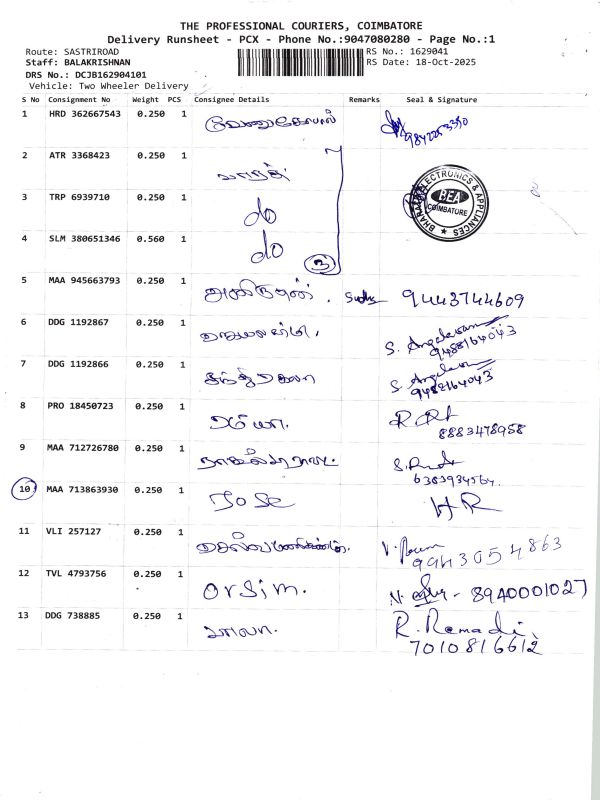 THE PROFESSIONAL COURIERS, COIMBATORE
Delivery Runsheet - PCX - Phone No.:9047080280 - Page No.:1
Route: SASTRIROAD RS No.: 1629041
Staff: BALAKRISHNAN RS Date: 18-Oct-2025
DRS No.: DCJB162904101
Vehicle: Two Wheeler Delivery
S No Consignment No Weight PCS Consignee Details Remarks Seal & Signature
1 HRD 362667543 0.250 1 வேணுகோபால் 9842253350
2 ATR 3368423 0.250 1 பாரத்
BHARAT ELECTRONICS & APPLIANCES BEA COIMBATORE
3 TRP 6939710 0.250 1 do
4 SLM 380651346 0.560 1 do 3
5 MAA 945663793 0.250 1 9443744609
6 DDG 1192867 0.250 1 S. 9488164043
7 DDG 1192866 0.250 1 S. 9488164043
8 PRO 18450723 0.250 1 ரம்யா. 8883478958
9 MAA 712726780 0.250 1 6383934564
10 MAA 713863930 0.250 1 Jose HR
11 VLI 257127 0.250 1 செல்வமணிகண்டன். 9943054863
12 TVL 4793756 0.250 1 orsim. N. - 8940001027
13 DDG 738885 0.250 1 பாலா. R. Ramadi
7010816612